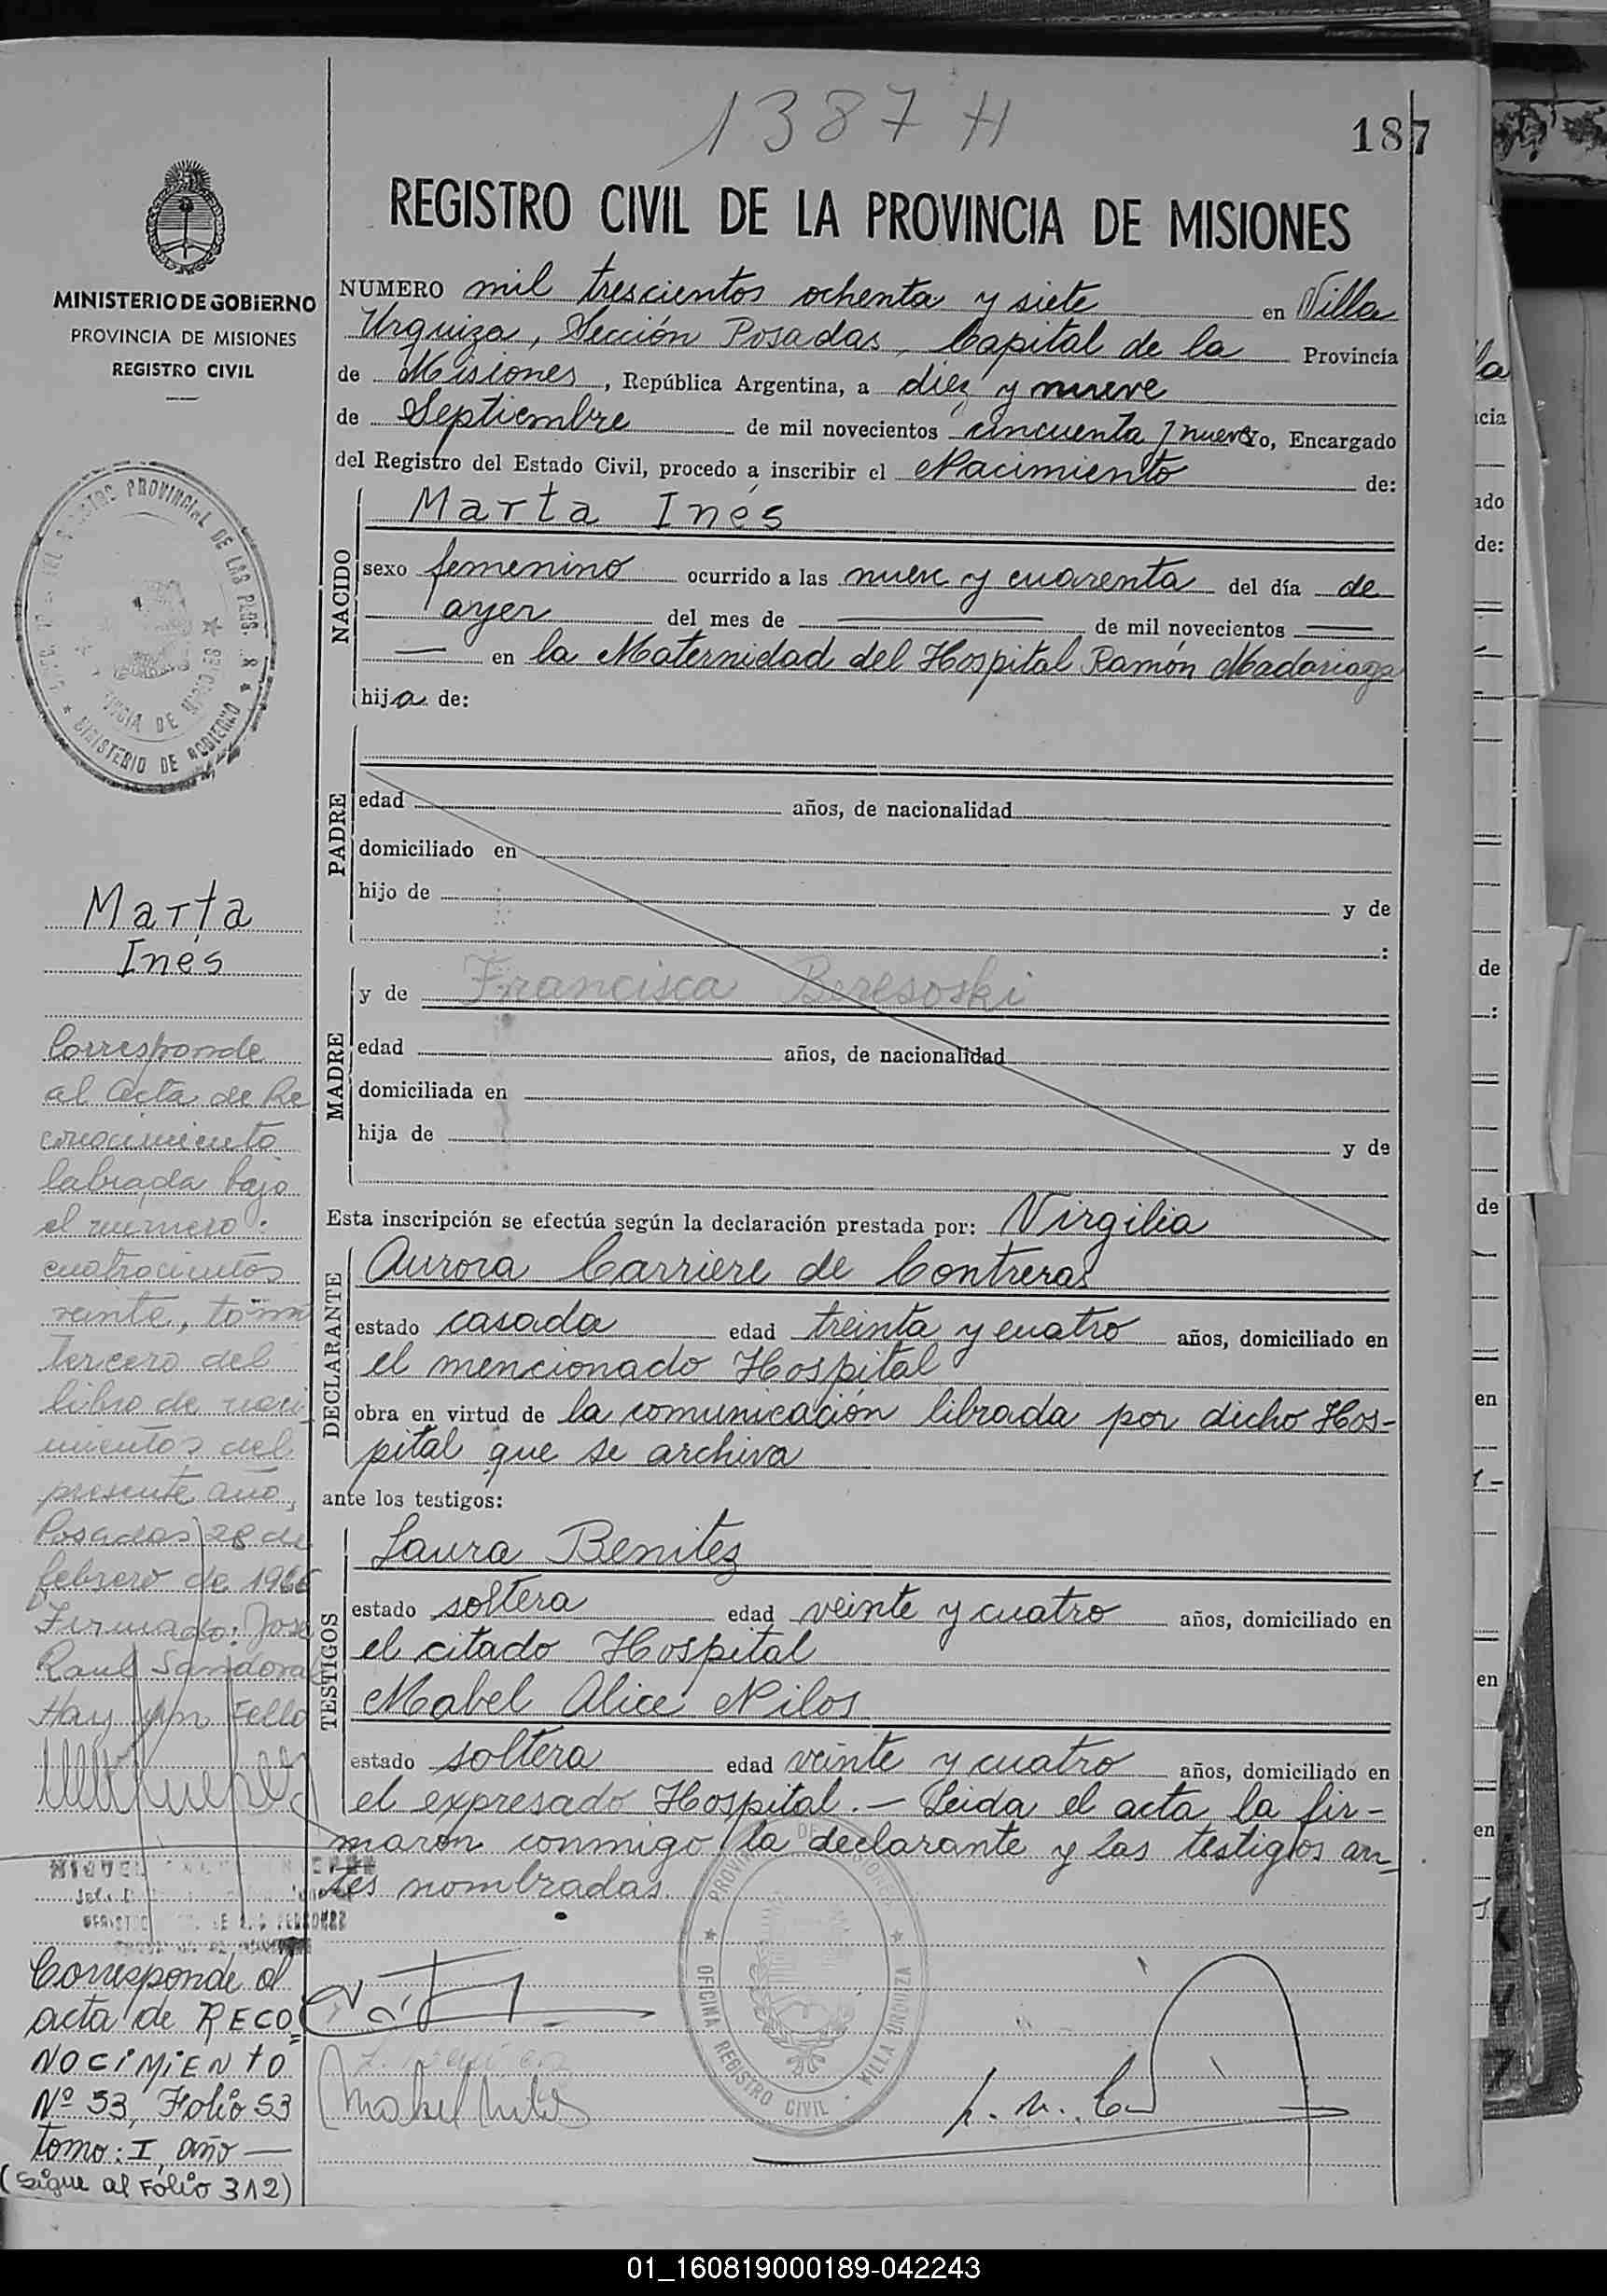 1387 H
187
REGISTRO CIVIL DE LA PROVINCIA DE MISIONES
MINISTERIO DE GOBIERNO
PROVINCIA DE MISIONES
REGISTRO CIVIL
NUMERO mil trescientos ochenta y siete en Villa
Urquiza, Sección Posadas, Capital de la Provincia
de Misiones, República Argentina, a diez y nueve
de Septiembre de mil novecientos cincuenta y nueve yo, Encargado
del Registro del Estado Civil, procedo a inscribir el Nacimiento de:
NACIDO
Marta Inés
sexo femenino ocurrido a las nueve y cuarenta del día de
ayer del mes de — de mil novecientos —
— en la Maternidad del Hospital Ramón Madariaga
hija de:
PADRE
edad años, de nacionalidad
domiciliado en
hijo de y de
:
MADRE
y de Francisca Beresoski
edad años, de nacionalidad
domiciliada en
hija de y de
Esta inscripción se efectúa según la declaración prestada por: Virgilia
DECLARANTE
Aurora Carriere de Contreras
estado casada edad treinta y cuatro años, domiciliado en
el mencionado Hospital
obra en virtud de la comunicación librada por dicho Hos-
pital que se archiva
ante los testigos:
TESTIGOS
Laura Benitez
estado soltera edad veinte y cuatro años, domiciliado en
el citado Hospital
Mabel Alice Nilos
estado soltera edad veinte y cuatro años, domiciliado en
el expresado Hospital.— Leida el acta la fir-
maron conmigo la declarante y las testigos an-
tes nombradas.
PROVINCIA DE MISIONES
OFICINA REGISTRO CIVIL - VILLA URQUIZA
Mabel Nilos
PROVINCIAL DE LAS PERS.
MINISTERIO DE GOBIERNO
Marta
Inés
Corresponde
al Acta de Re
conocimiento
labrada bajo
el numero:
cuatrocientos
veinte, tomo
tercero del
libro de naci-
mientos del
presente año,
Posadas 28 de
febrero de 1966
Firmado: José
Raul Sandoval
Hay un sello
MIGUEL
Corresponde al
acta de RECO=
NOCIMIENTO
Nº 53, Folio 53
tomo: I, año —
(Sigue al Folio 312)
01_160819000189-042243